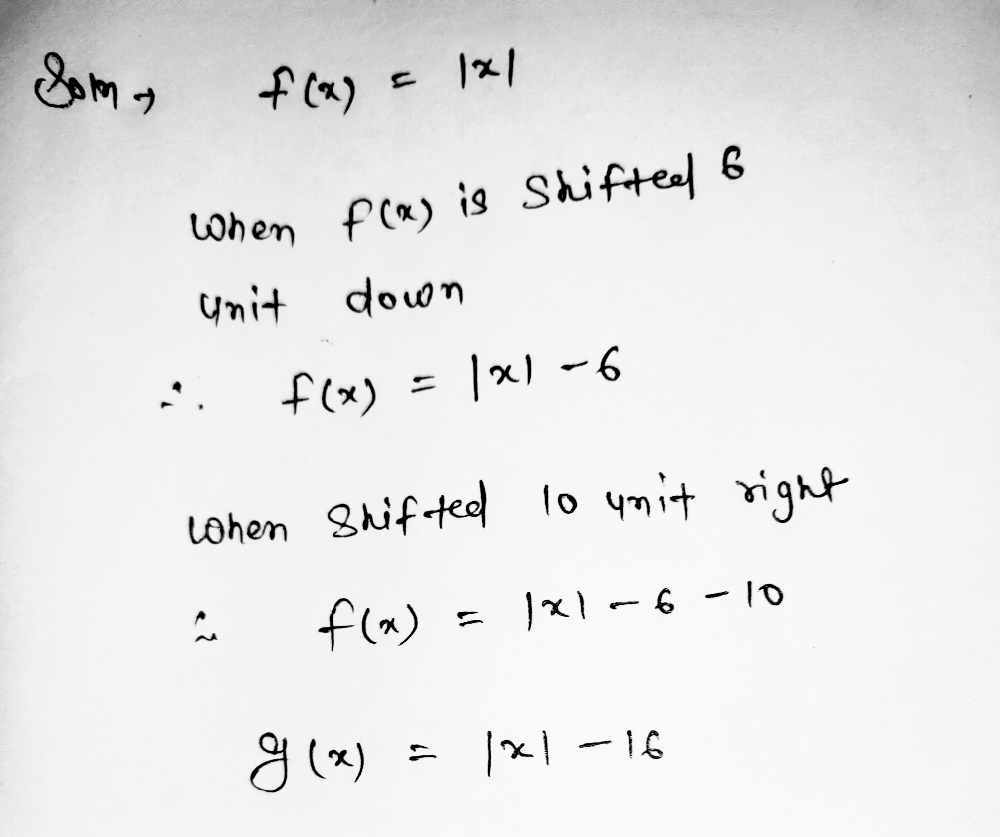 Soln → f(x) = |x|
When f(x) is Shifted 6
unit down
∴ f(x) = |x| - 6
When Shifted 10 unit right
∴ f(x) = |x| - 6 - 10
g(x) = |x| - 16